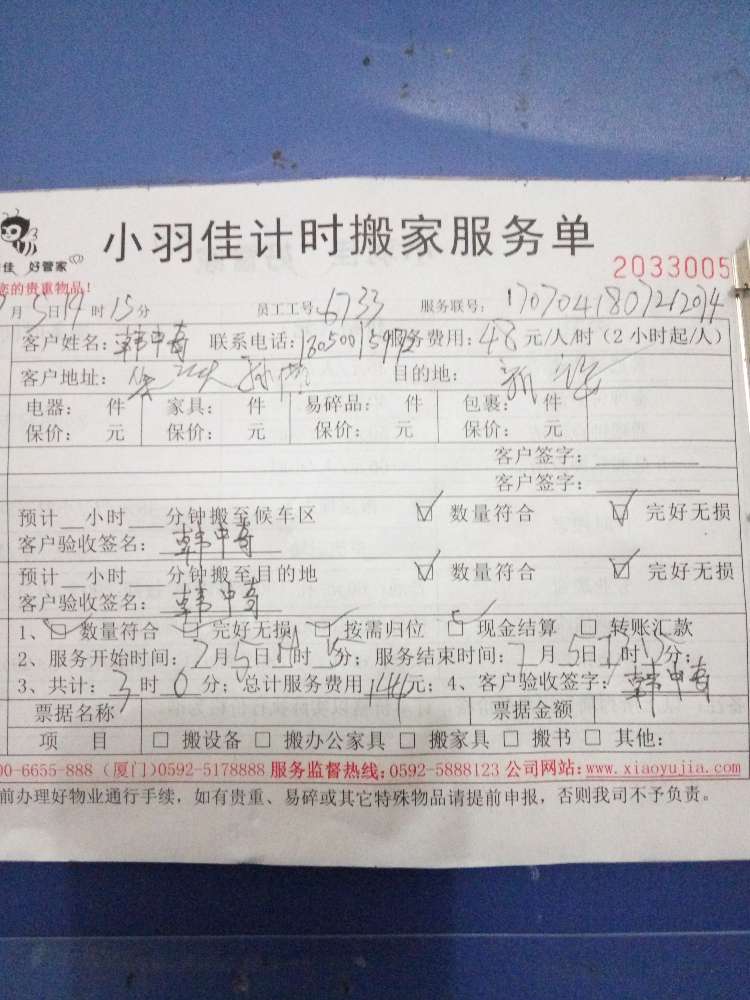 小羽佳计时搬家服务单
佳 好管家
您的贵重物品！
2033005
月5日14时15分 员工工号：6733 服务联号：1707041807212074
客户姓名：韩中奇 联系电话： 服务费用：48元/人/时（2小时起/人）
客户地址： 目的地：
电器： 件 家具： 件 易碎品： 件 包裹： 件
保价： 元 保价： 元 保价： 元 保价： 元
客户签字：
客户签字：
预计__小时___分钟搬至候车区 ☑ 数量符合 ☑ 完好无损
客户验收签名：韩中奇
预计__小时___分钟搬至目的地 ☑ 数量符合 ☑ 完好无损
客户验收签名：韩中奇
1、☑ 数量符合 ☑ 完好无损 ☑ 按需归位 ☑ 现金结算 □ 转账汇款
2、服务开始时间：7月5日14时15分；服务结束时间：7月5日17时15分；
3、共计：3时0分；总计服务费用144元；4、客户验收签字：韩中奇
票据名称 票据金额
项 目 □ 搬设备 □ 搬办公家具 □ 搬家具 □ 搬书 □ 其他：
00-6655-888（厦门）0592-5178888 服务监督热线：0592-5888123 公司网站：www.xiaoyujia.com
前办理好物业通行手续，如有贵重、易碎或其它特殊物品请提前申报，否则我司不予负责。